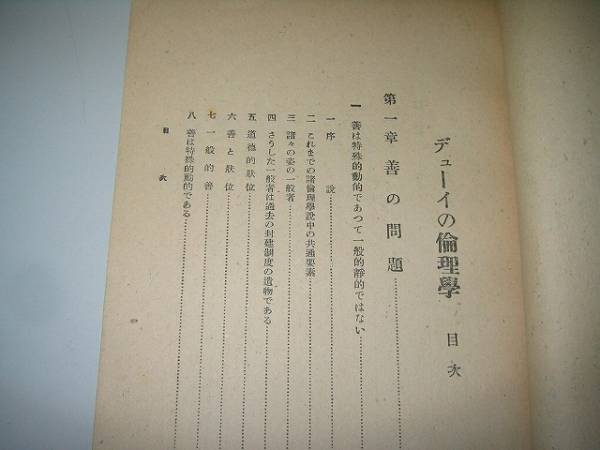 デューイの倫理學 目次
第一章 善の問題
一 善は特殊的動的であつて一般的靜的ではない
一 序說
二 これまでの諸倫理學說中の共通要素
三 諸々の姿の一般者
四 さうした一般者は過去の封建制度の遺物である
五 道德的狀位
六 善と狀位
七 一般的善
八 善は特殊的動的である
目次